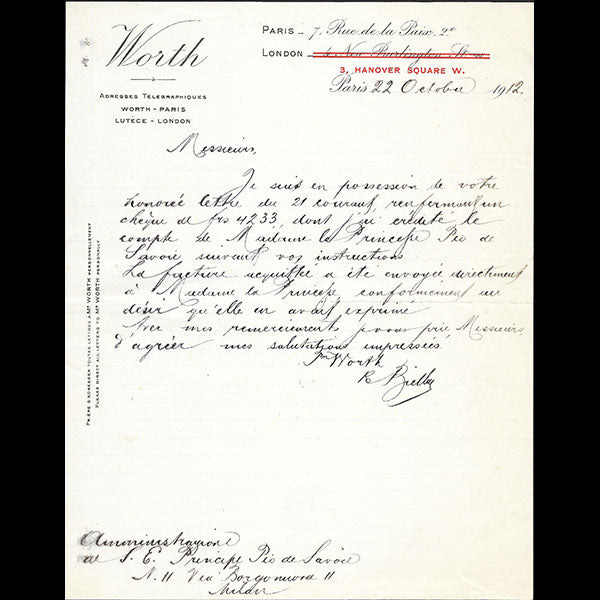 Worth
Adresses Télégraphiques
WORTH - PARIS
LUTÈCE - LONDON
PARIS - 7, Rue de la Paix. 2e
LONDON - 4, New Burlington St. W.
3, HANOVER SQUARE W.
Paris 22 Octobre 1912.
Messieurs,
Je suis en possession de votre
honorée lettre du 21 courant renfermant un
chèque de frs 4233, dont j'ai crédité le
compte de Madame la Princesse Pio de
Savoie suivant vos instructions.
La facture acquittée a été envoyée directement
à Madame la Princesse, conformément au
désir qu'elle en avait exprimé.
Avec mes remerciements, je vous prie Messieurs,
d'agréer mes salutations empressées.
Pr Worth
PRIÈRE D'ADRESSER TOUTES LETTRES À MR WORTH PERSONNELLEMENT
PLEASE DIRECT ALL LETTERS TO MR WORTH PERSONALLY
Amministrazione
de S. E. Principe Pio de Savoie
N. 11 Via Borgonuovo 11
Milan